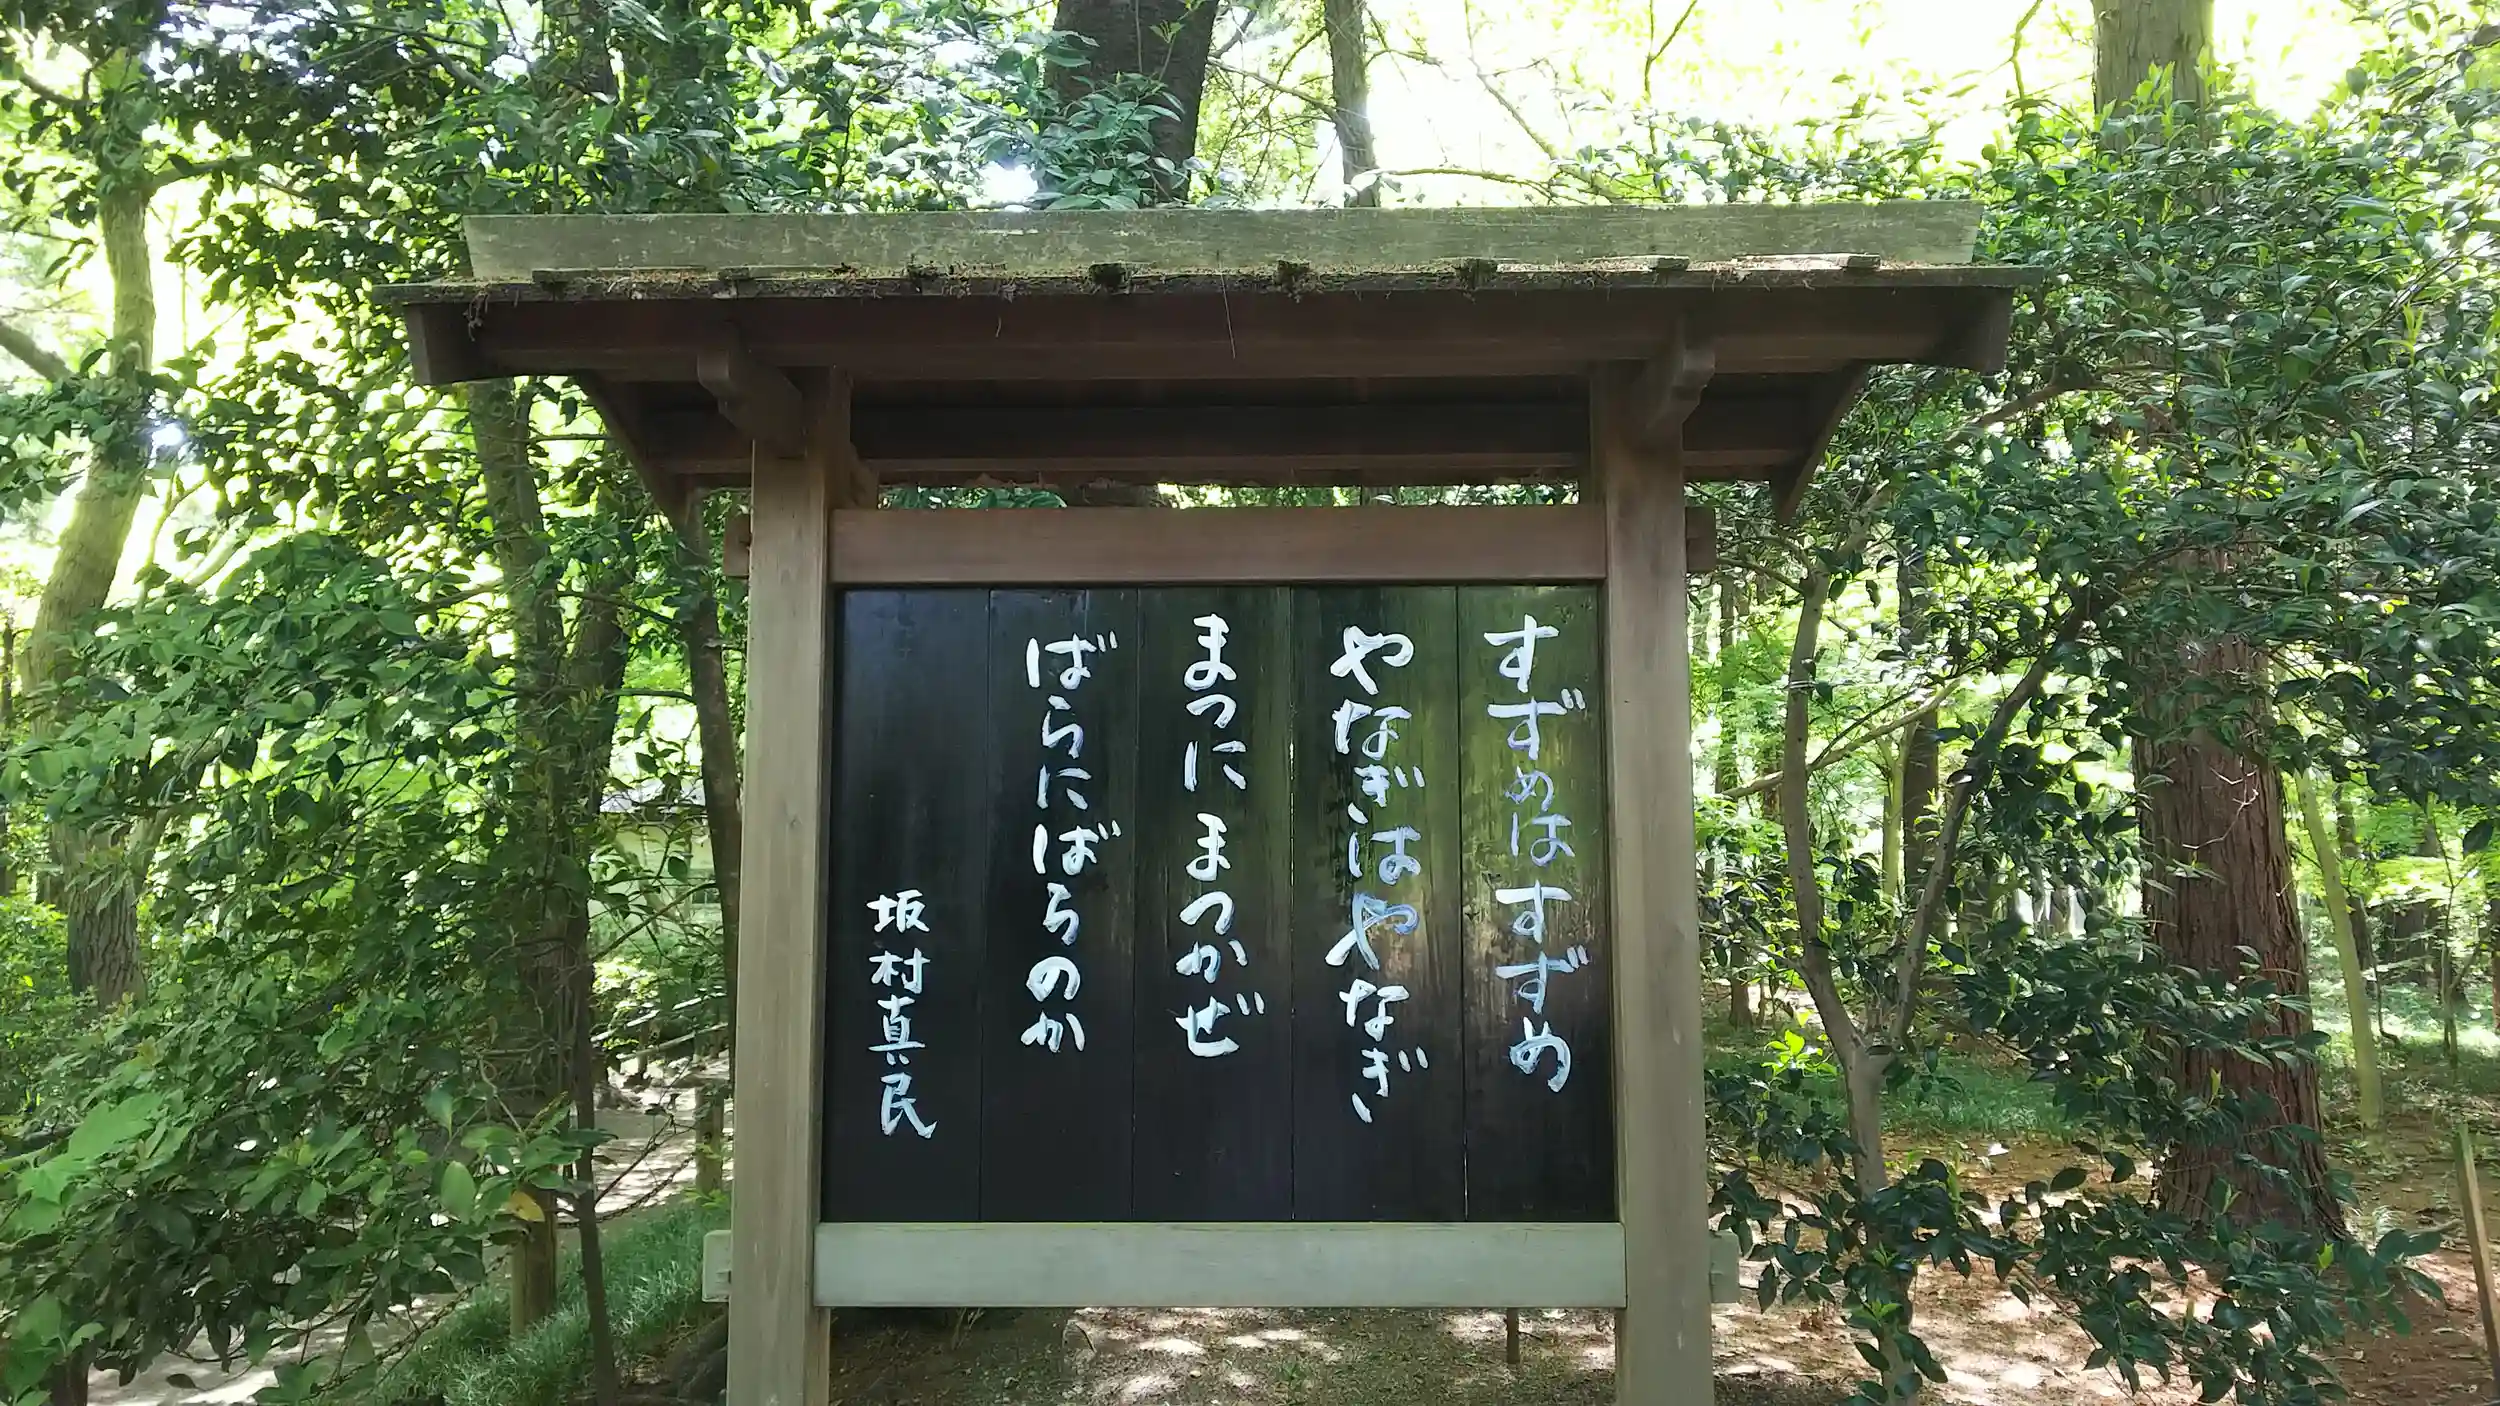 すずめはすずめ
やなぎはやなぎ
まつに まつかぜ
ばらにばらのか
坂村真民